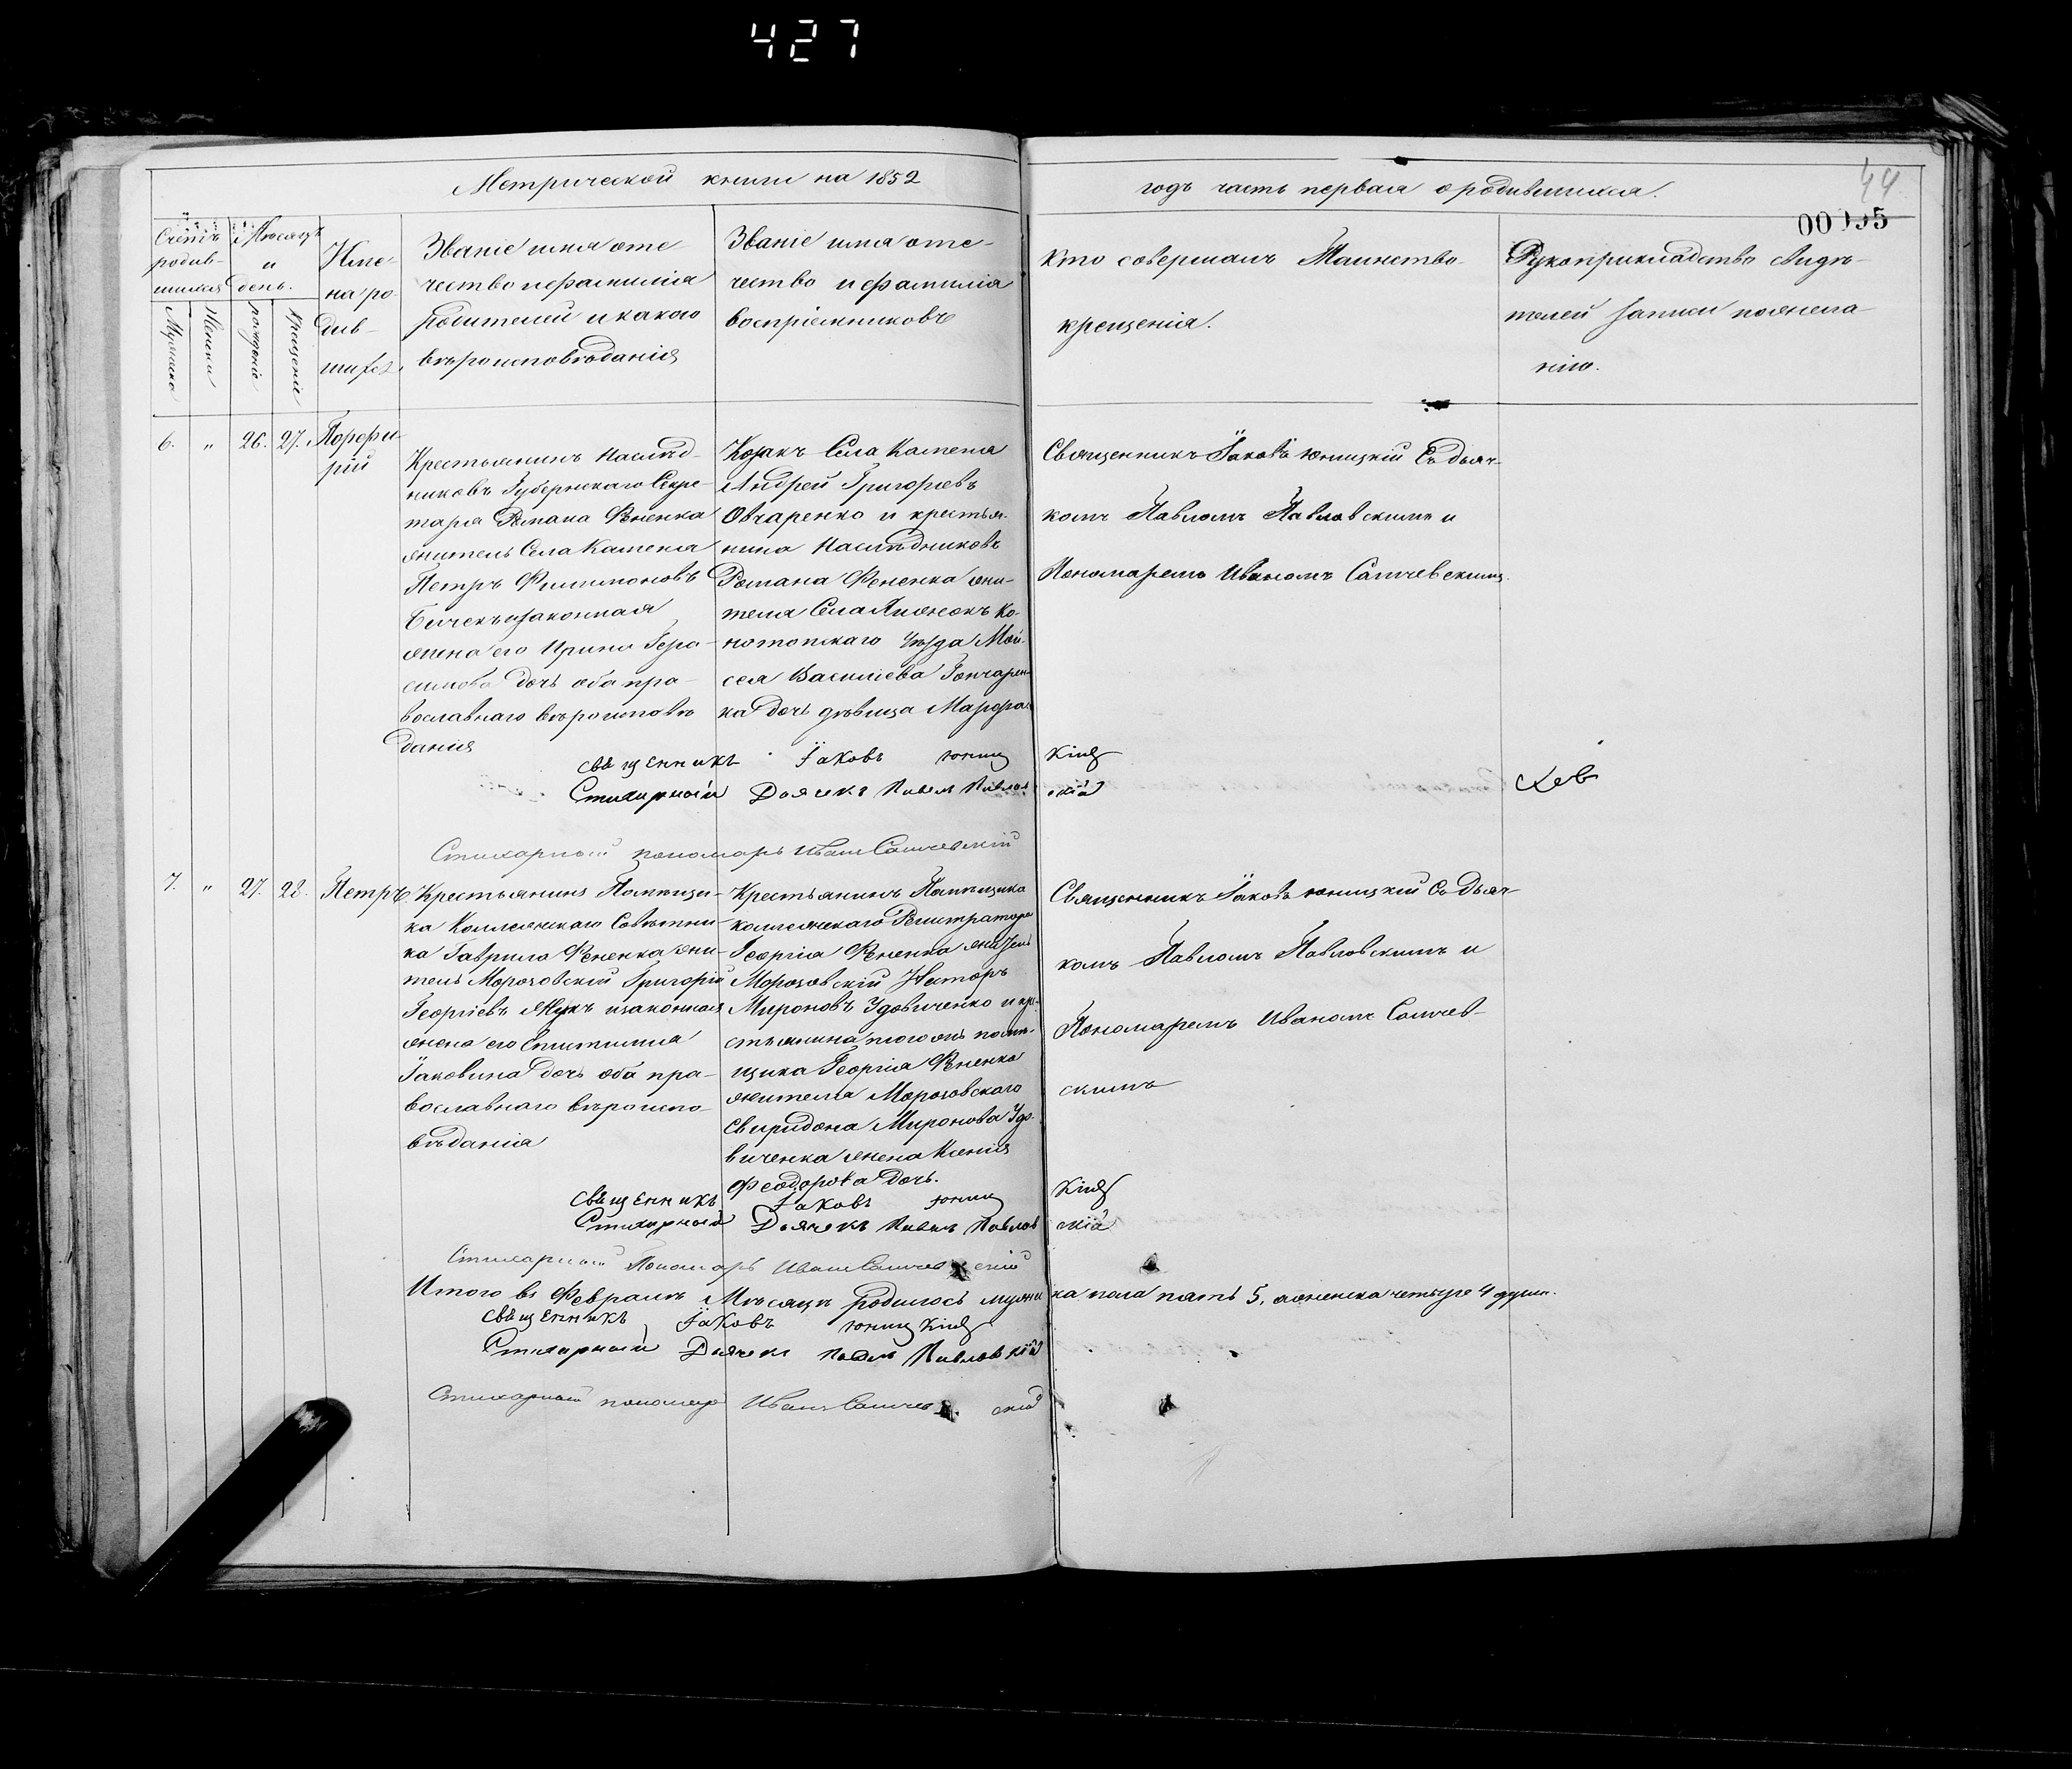 427
Метрической книги на 1852
годъ часть первая о родившихся.
44
00155
Счетъ родив-шихся
Мѣсяцъ и день.
Мужеска
Женски
рожденія
крещенія
Име-
на ро-
див-
шихся
Званіе имя оте-
чество и фамилія
родителей и какого
вѣроисповѣданія
Званіе имя оте-
чество и фамилія
воспріемниковъ
Кто совершалъ Таинство
крещенія.
Рукоприкладство свидѣ-
телей записи по жела-
нію.
6. " 26. 27. Порфи-
рій
Крестьянинъ Наслѣд-
никовъ Губернскаго Секре-
таря Романа Фененка
житель Села Каменя
Петръ Филимоновъ
законная
жена его Ирина Гера-
симова дочь оба пра-
вославнаго вѣроисповѣ
данія
Козакъ Села Каменя
Андрей Григорьевъ
Овчаренко и крестья-
нина Наслѣдниковъ
Романа Фененка жи-
теля Села Ко-
нотопскаго уѣзда Мой-
сея Василіева Гончарен-
ка дочь дѣвица Марфа.
Священникъ Іаковъ Юницкій Съ дьяч-
комъ Павломъ Павловскимъ и
Пономаремъ Иваномъ Самчевскимъ.
священникъ Іаковъ Юницкій
Стихарный Дьячекъ Павелъ Павловскій
Стихарный пономарь Иванъ Самчевскій
7. " 27. 28. Петръ
Крестьянинъ Помѣщи-
ка Коллежскаго Совѣтни-
ка Гаврила Фененка жи-
тель Морозовскій Григорій
Георгіевъ Жукъ и законная
жена его Епистимія
Іаковина дочь оба пра-
вославнаго вѣроиспо-
вѣданія
Крестьянинъ Помѣщика
коллежскаго Регистратора
Георгія Фененка житель
Морозовскій Несторъ
Мироновъ Удовиченко и кре-
стьянина того жъ помѣ-
щика Георгія Фененка
жителя Морозовскаго
Свиридона Миронова Удо-
виченка жена Ксенія
Феодорова дочь.
Священникъ Іаковъ Юницкій Съ Дьяч-
комъ Павломъ Павловскимъ и
Пономаремъ Иваномъ Самчев-
скимъ
священникъ Іаковъ Юницкій
Стихарный Дьячекъ Павелъ Павловскій
Стихарный Пономарь Иванъ Самчевскій
Итого въ Февралѣ Мѣсяцѣ родилось мужеска пола пять 5, а женска четыре 4 души.
священникъ Іаковъ Юницкій
Стихарный Дьячекъ Павелъ Павловскій
Стихарный пономарь Иванъ Самчевскій